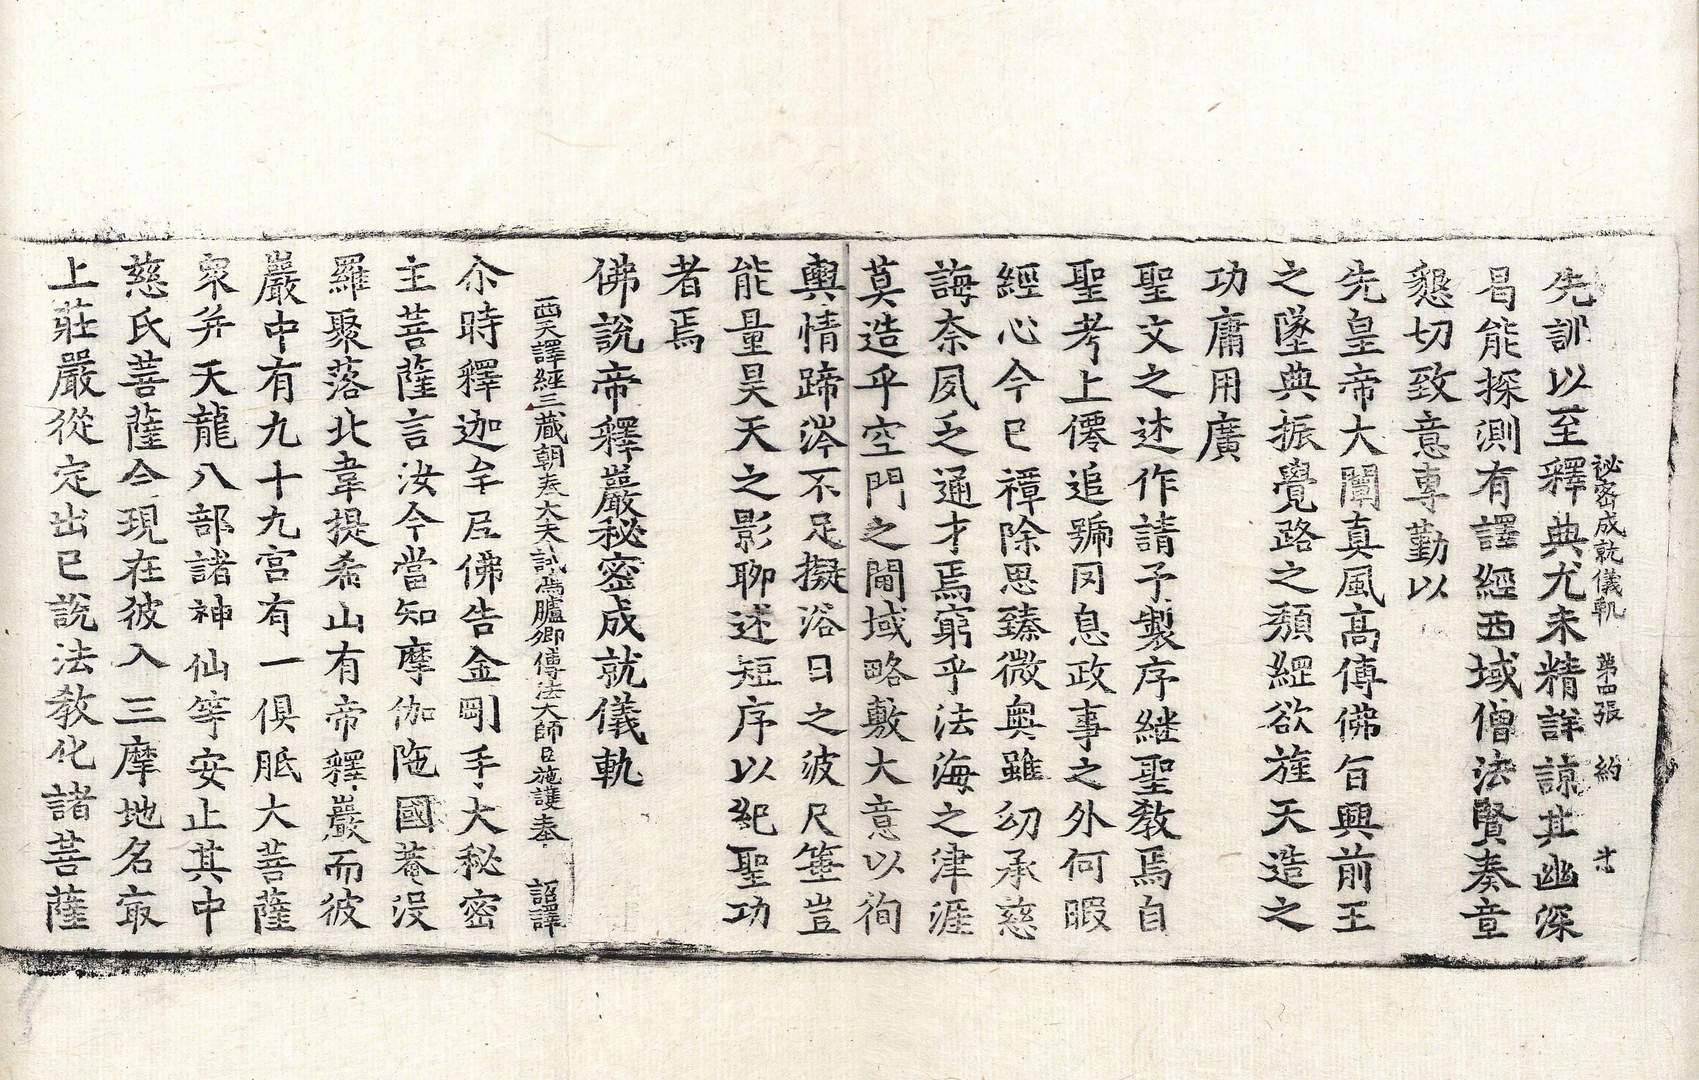 祕密成就儀軌 第四張 約
先訓以至釋典尤未精詳諒其幽深
曷能探測有譯經西域僧法賢奏章
懇切致意專勤以
先皇帝大闡真風高傳佛旨興前王
之墜典振覺路之頽綱欲旌天造之
功庸用廣
聖文之述作請予製序継聖教焉自
聖考上僊追號罔息政事之外何暇
經心今已禫除思臻微奧雖幼承慈
誨柰夙乏通才焉窮乎法海之津涯
莫造乎空門之閫域略敷大意以徇
輿情蹄涔不足擬浴日之波尺箠豈
能量昊天之影聊述短序以紀聖功
者焉
佛說帝釋巖秘密成就儀軌
西天譯經三藏朝奉大夫試鴻臚卿傳法大師臣施護奉 詔譯
尒時釋迦牟尼佛告金剛手大秘密
主菩薩言汝今當知摩伽陁國菴没
羅聚落北韋提希山有帝釋巖而彼
巖中有九十九宮有一俱胝大菩薩
衆并天龍八部諸神仙等安止其中
慈氏菩薩今現在彼入三摩地名冣
上莊嚴從定出已說法教化諸菩薩